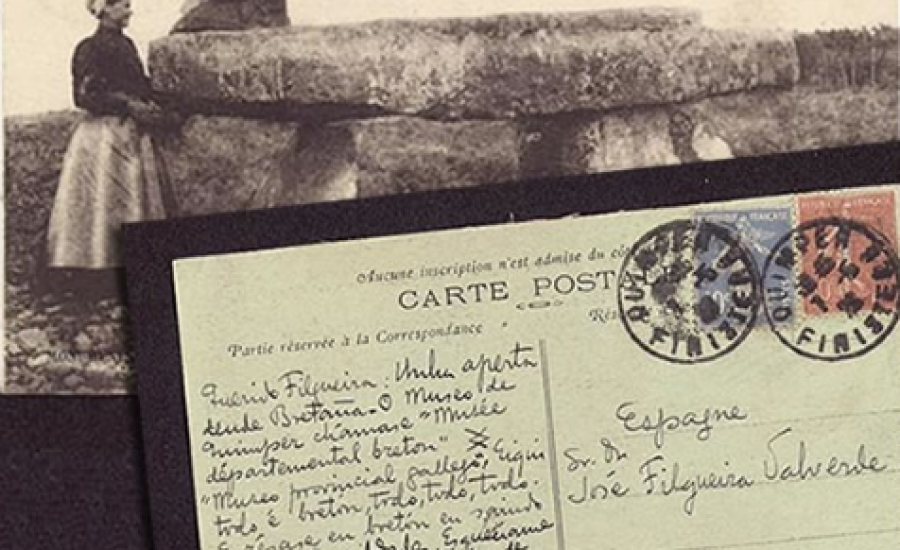 Aucune inscription n'est admise du cô
CARTE POST
Partie réservée à la Correspondance
Rés
QUIMPER
FINISTERE
QUIMPER
FINISTERE
Querido Filgueira: Unha aperta
dende Bretaña. O Museo de
Quimper chamase "Musée
départemental breton"
"Museo provincial gallego", Eiqui
todo é bretón, todo, todo, todo.
en bretón en
Espagne
Sr. Dn
José Filgueira Valverde